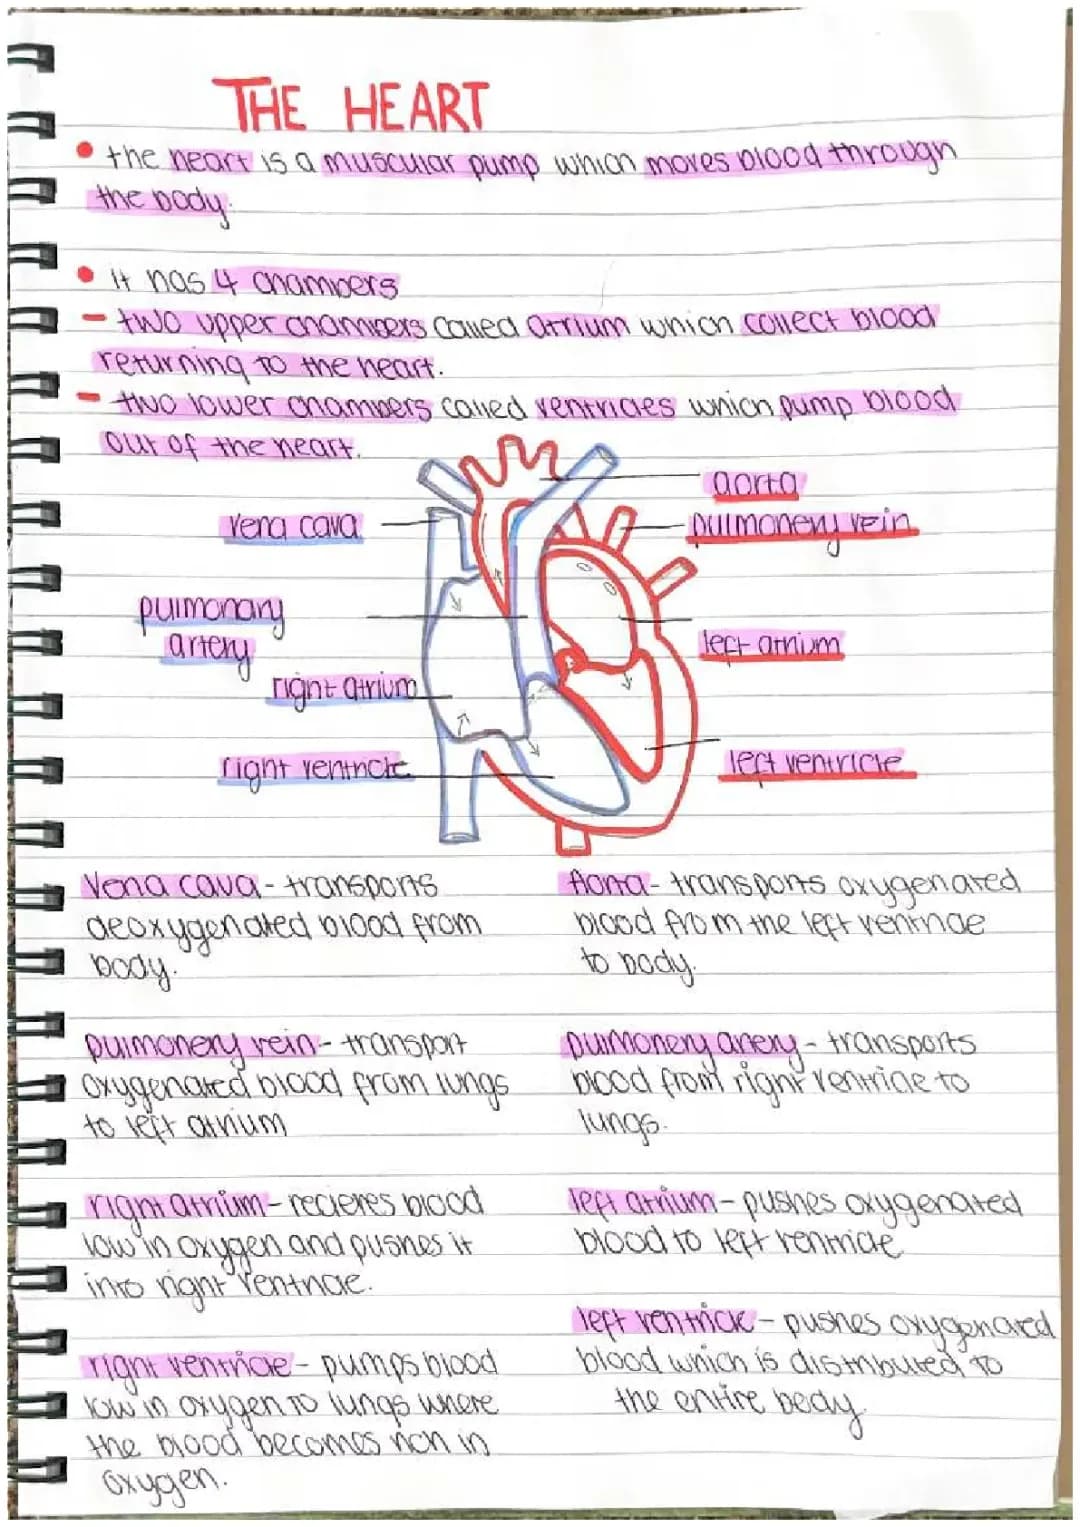 THE HEART
• the heart is a muscular pump which moves blood through
the body.
• it has 4 chambers
- two upper chambers called atrium which collect blood
returning to the heart.
- two lower chambers called ventricles which pump blood
out of the heart.
aorta
vena cava
pulmonery vein
pulmonary
artery
left atrium
right atrium
right ventricle
left ventricle
Vena cava - transports
deoxygenated blood from
body.
Aorta - transports oxygenated
blood from the left ventricle
to body.
pulmonery vein - transport
oxygenated blood from lungs
to left atrium
pulmonery artery - transports
blood from right ventricle to
lungs.
right atrium - recieves blood
low in oxygen and pushes it
into right ventricle.
left atrium - pushes oxygenated
blood to left ventricle
right ventricle - pumps blood
low in oxygen to lungs where
the blood becomes rich in
oxygen.
left ventricle - pushes oxygenated
blood which is distributed to
the entire body.